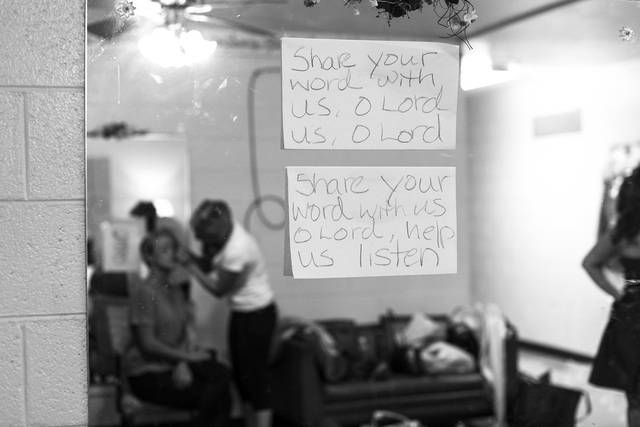 Share your
word with
us, O Lord
us, O Lord
Share your
word with us
O Lord, help
us listen